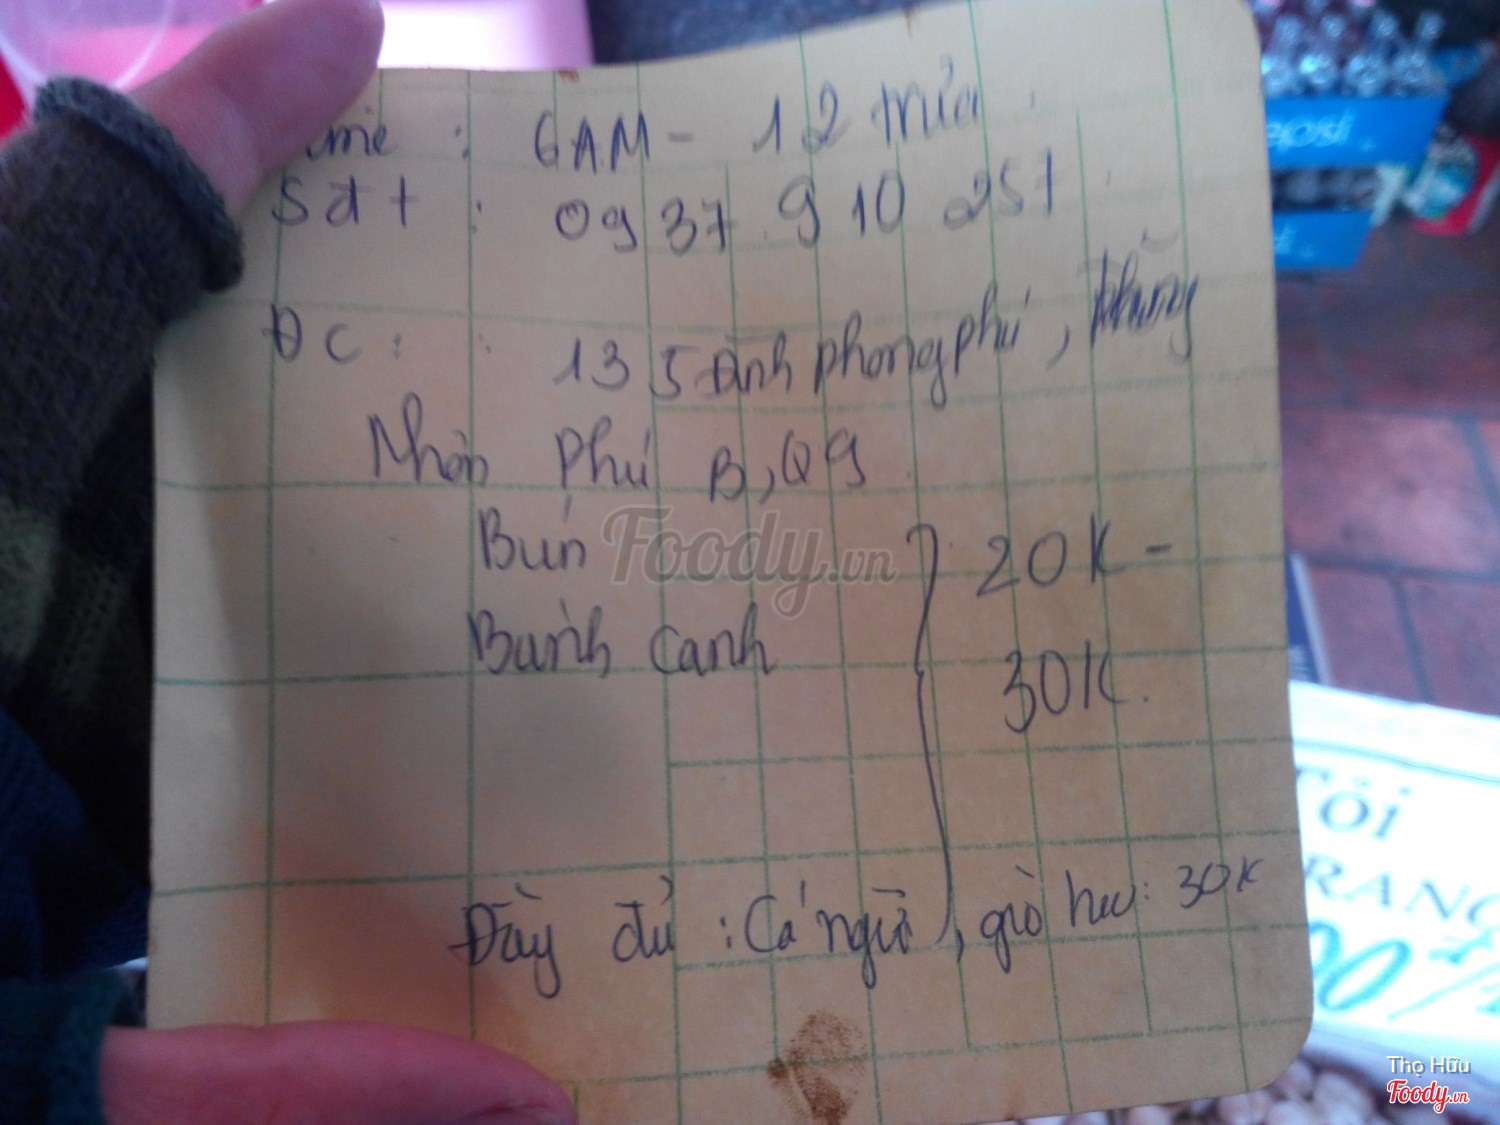 ime : 6AM - 12 trưa
Sđt : 0937 910 251
ĐC : 135 Đình phong phú,
Nhơn Phú B, Q9
Bún
20K -
Bánh canh
30K.
Đầy đủ : Cá ngừ, giò heo : 30K
Foody.vn
Pepsi
TỎI
RANG
00/
Thọ Hữu
Foody.vn